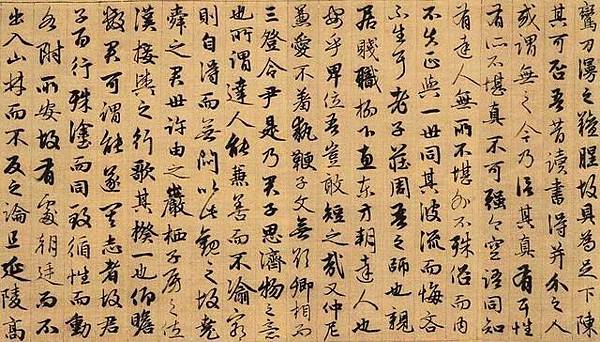 鸞刀漫之羶腥故具為足下陳
其可否吾昔讀書得并介之人
或謂無之今乃信其真有耳性
有所不堪真不可强今空語同知
有達人無所不堪外不殊俗而内
不失正與一世同其波流而悔吝
不生耳老子莊周吾之師也親
居賤職柳下惠東方朔達人也
安乎卑位吾豈敢短之哉又仲尼
兼愛不羞執鞭子文無欲卿相而
三登令尹是乃君子思濟物之意
也所謂達人能兼善而不渝窮
則自得而無悶以此觀之故堯
舜之君世許由之巖栖子房之佐
漢接輿之行歌其揆一也仰瞻
數君可謂能遂其志者故君
子百行殊塗而同致循性而動
各附所安故有處朝廷而不
出入山林而不反之論且延陵高